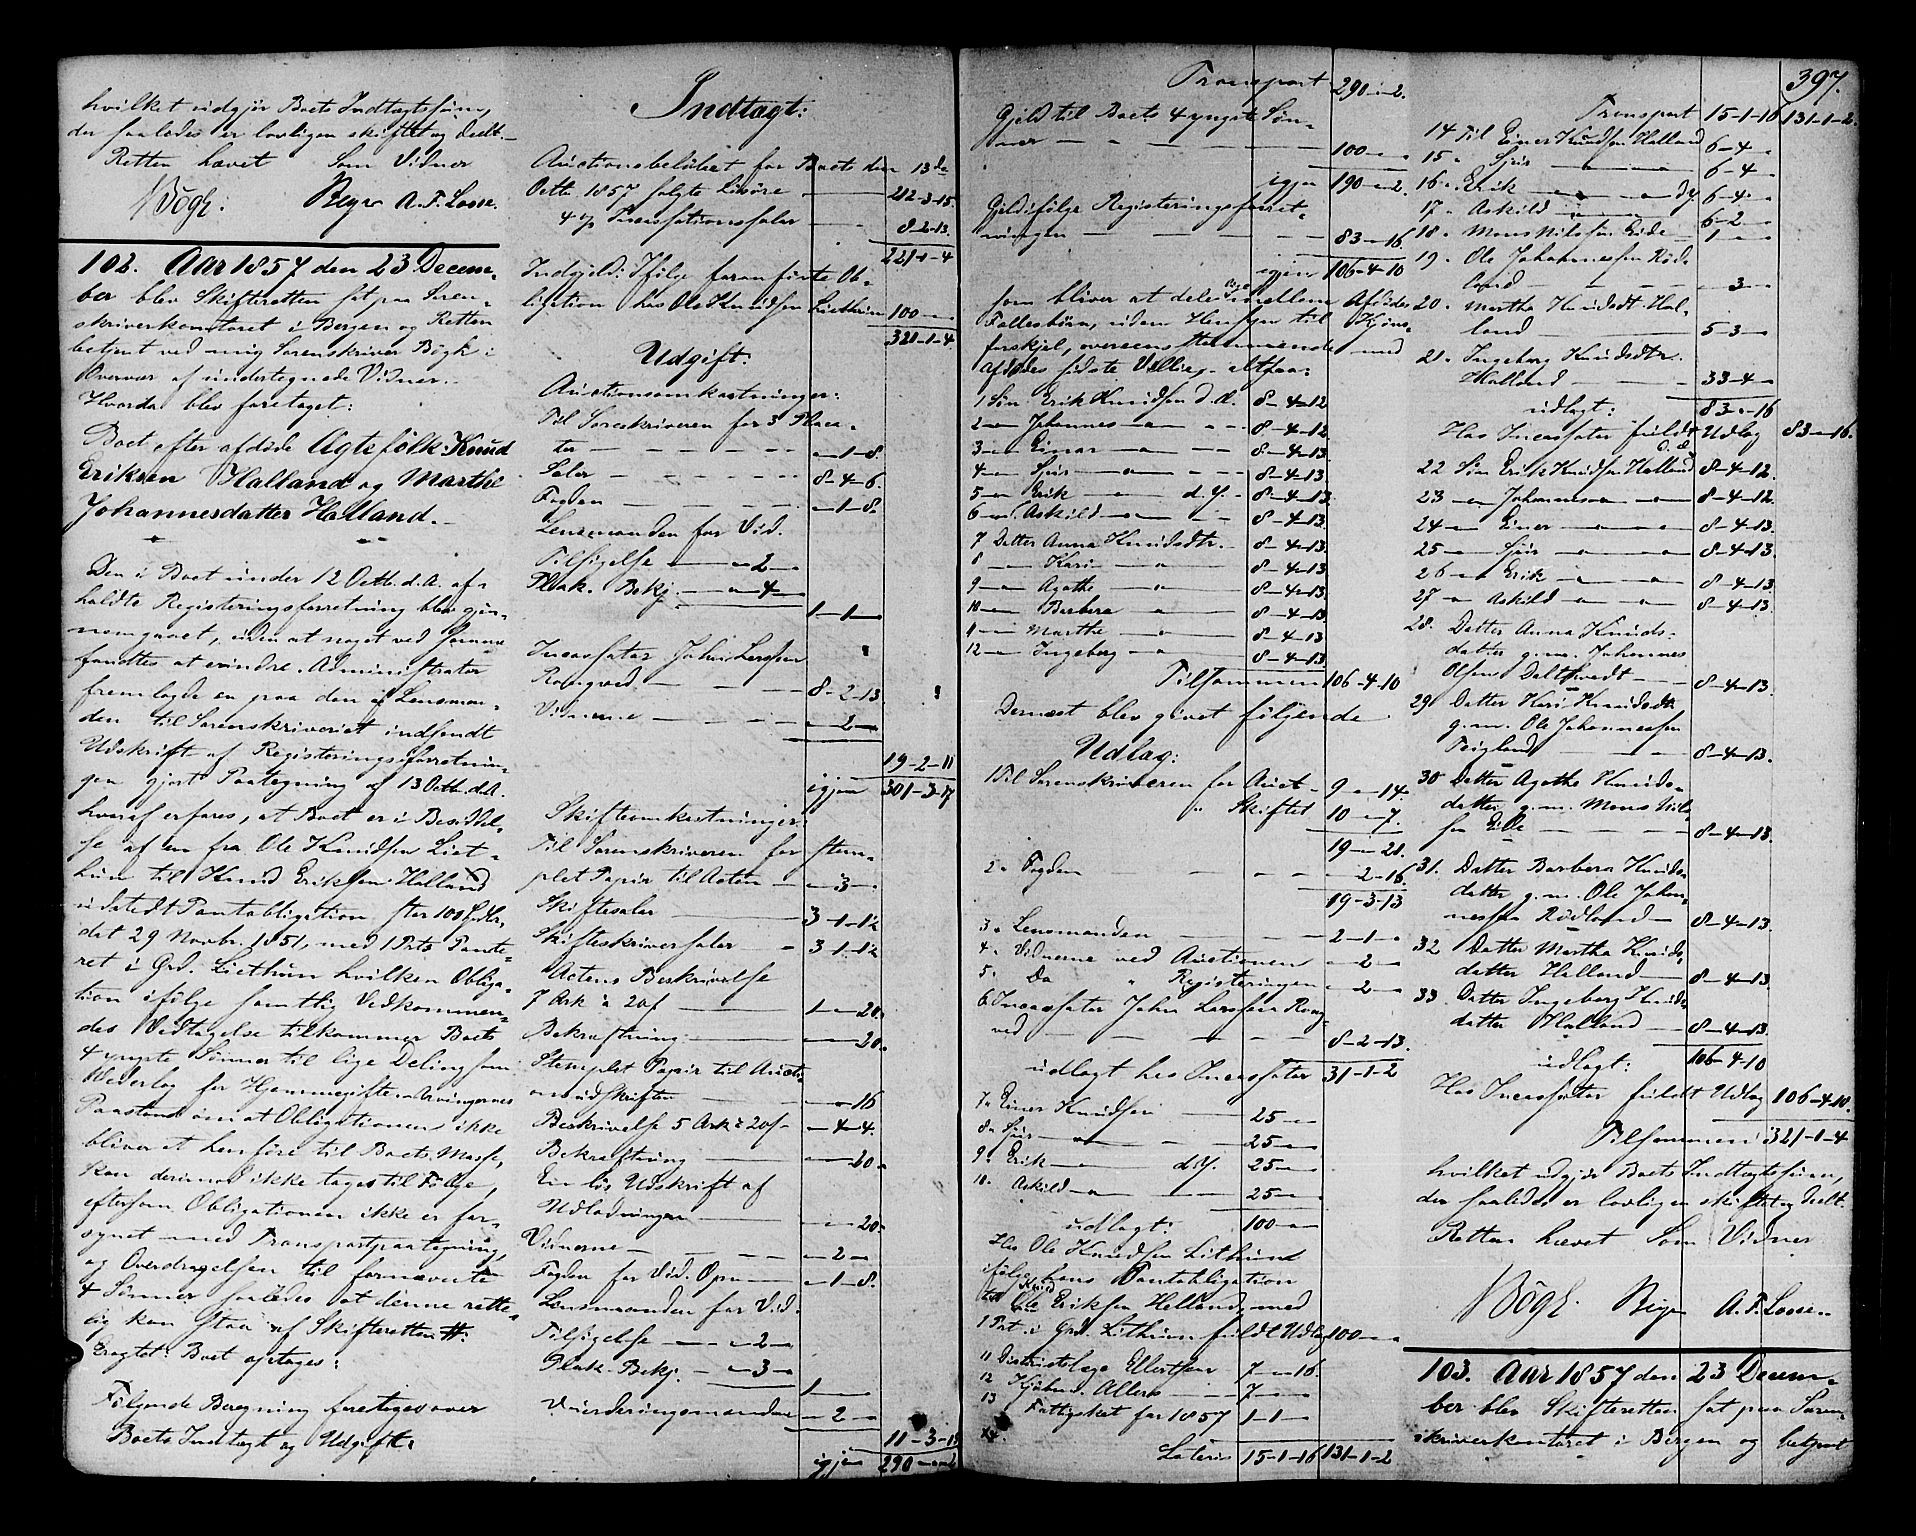 hvilket udgjør Boets Indtægtssum,
der saaledes er lovligen skiftet og deelt.
Retten hævet Som Vidner
Bøgh: A. F. Losse.
102. Aar 1857 den 23 Decem-
ber blev Skifteretten sat paa Soren-
skriverkontoret i Bergen og Retten
betjent ved mig Sorenskriver Bøgh i
Overvær af undertegnede Vidner.
Hvorda blev foretaget:
Boet efter afdøde Ægtefolk: Knud
Eriksen Halland og Marthe
Johannesdatter Halland.
Den i Boet under 12 Octb. d. A. af-
holdte Registeringsforretning blev gjen-
nemgaaet, uden at noget ved samme
fandtes at erindre. Administrator
fremlagde en paa den af Lensman-
den til Sorenskriveriet indsendt
Udskrift af Registeringsforretnin-
gen gjort Paategning af 13 Octb. d. A.
hvoraf erfares, at Boet er i Besiddel-
se af en fra Ole Knudsen Liet-
hun til Knud Eriksen Halland
udstedt Pantobligation stor 100 Spdlr.
dat 29 Novbr. 1851, med 1 Prts Pante-
ret i Grd. Liethun hvilken Obliga-
tion ifølge samtlig Vedkommen-
des Vedtagelse tilkommer Boets
4 yngste Sønner til lige Deling som
Vederlag for Hjemmegiften Arvingernes
Paastand om at Obligationen ikke
bliver at henføre til Boets Masse,
kan derimod ikke tages til Følge,
eftersom Obligationen ikke er for-
synet med Transportpaategning,
og Overdragelsen til fornævnte
4 Sønner saaledes at denne rette-
lig kan af Skifteretten
Eragtet: Boet optages:
Følgende Beregning foretoges over
Boets Indtægt og Udgift:
Indtægt:
Auctionsbeløbet for Boets den 13de
Octb 1857 solgte Løsøre — 212-3-15.
4 p% Incassationssalær — 8-2-13.
221-1-4
Indgjeld: Ifølge foranførte Ob-
ligation hos Ole Knudsen Liethun 100 —
321-1-4.
Udgift:
Auctionsomkostninger:
Til Sorenskriveren for 3 Placa-
ter — — — — — — 1-8.
Salær — — — — — 8-4-6.
Fogden — — — — — 1-8.
Lensmanden for Vid.
Tilsigelse — — 2 —
Plak. Bekj. — — 4 —
1-1 —
Incassator John Larssen
Rongved — — — — 8-2-13
Vidnerne — — — — 2 —
19-2-11
igjen 301-3-17
Skifteomkostninger:
Til Sorenskriveren for stem-
plet Papir til Acten — — 3 —
Skiftesalær — 3-1-12
Skifteskriversalær — 3-1-12
Actens Beskrivelse
7 Ark à 20 s — 1 — 20.
Bekræftning — — 20.
Stemplet Papir til Aucti-
onsudskriften — — 16
Beskrivelse 5 Ark à 20 s — 4-4.
Bekræftning — — 20.
En løs Udskrift af
Udlodningen — — 20.
Vidnerne — — — — 2 —
Fogden for Vid. Opn — 1-8.
Lensmanden for Vid.
Tilsigelse — — 2 —
Plak. Bekj. — — 3 —
1 —
Vurderingsmændene — 2 —
11-3-15
igjen 290 — 2
Transport 290 — 2.
Gjeld til Boets 4 yngste Søn-
ner — — — — — 100 —
igjen 190 — 2.
Gjeld ifølge Registeringsforret-
ningen — — — 83 — 16.
igjen 106-4-10
som bliver at dele imellem Afdødes
Fællesbørn, uden Hensyn til Kjøns-
forskjel, overeensstemmende med
Afdødes sidste Villie, altsaa:
1 Søn Erik Knudsen d. Æ. 8-4-12
2 — Johannes — 8-4-12.
3 — Einar — 8-4-13.
4 — Sjur — 8-4-13.
5 — Erik — d. Y. — 8-4-13.
6 — Askild — 8-4-13.
7 Datter Anna Knudsdtr. — 8-4-13.
8 — Kari — 8-4-13.
9 — Agathe — 8-4-13.
10 — Barbera — 8-4-13
11 — Marthe — 8-4-13.
12 — Ingeborg — 8-4-13.
Tilsammen 106-4-10
Dernæst blev givet følgende
Udlæg:
1 Til Sorenskriveren for Auct — 9 — 14.
" Skiftet 10 — 7.
19 — 21.
2 " Fogden — — — — 2-16.
19-3-13
3 " Lensmanden — — — 2-1 —
4 " Vidnerne ved Auctionen — 2 —
5 " Do " Registeringen — 2 —
6 " Incassator John Larssen Rong-
ved — — — — 8-2-13.
udlagt hos Incassator 31-1-2
7 " Einer Knudsen — 25 —
8 " Sjur — 25 —
9 " Erik — d. Y. 25 —
10 " Askild — 25 —
udlagt: 100 —
Hos Ole Knudsen Liethun
ifølge hans Pantobligation
til Knud Eriksen Helland, med
1 Prt. i Grd. Liethun fuldt Udlæg 100 —
11 Districtslæge Ellertsen 7 — 16.
12 Kjøbmd. Allers — 7 —
13 Fattigskat for 1857 1-1 —
Lateris 15-1-16 131-1-2
397.
Transport 15-1-16 131-1-2.
14 Til Einer Knudsen Halland 6-4 —
15 " Sjur — 6-4 —
16 " Erik — d. Y. 6-4 —
17 " Askild — 6-2 —
18 " Mons Nilssen Eide — 1 —
19 " Ole Johannessen Rød-
land — — — — 3 —
20 " Martha Knudsdt. Hal-
land — 5-3 —
21 " Ingeborg Knudsdtr.
Halland — — — 33-4 —
udlagt: 83 — 16
Hos Incassator fuldt Udlæg 83 — 16.
22 Søn Erik Knudsen Halland d. Æ. 8-4-12.
23 — Johannes — 8-4-12.
24 — Einer — 8-4-13.
25 — Sjur — 8-4-13.
26 — Erik — 8-4-13
27 — Askild — 8-4-13.
28. Datter Anna Knuds-
datter g. m. Johannes
Olsen Daltvedt — 8-4-13.
29 Datter Kari Knudsdt
g. m. Ole Johannessen
Teigland — 8-4-13.
30 Datter Agathe Knuds-
datter g. m. Mons Nils-
sen Eide — 8-4-13.
31. Datter Barbera Knuds-
datter g. m. Ole Johan-
nessen Rødland — 8-4-13.
32 Datter Martha Knuds-
datter Halland — 8-4-13.
33. Datter Ingeborg Knuds-
datter Halland — 8-4-13.
udlagt: 106-4-10
Hos Incassator fuldt Udlæg 106-4-10.
Tilsammen 321-1-4
hvilket udgjør Boets Indtægtssum,
der saaledes er lovligen skiftet og deelt.
Retten hævet Som Vidner
Bøgh. A. F. Losse.
103. Aar 1857 den 23 Decem-
ber blev Skifteretten sat paa Soren-
skriverkontoret i Bergen og betjent